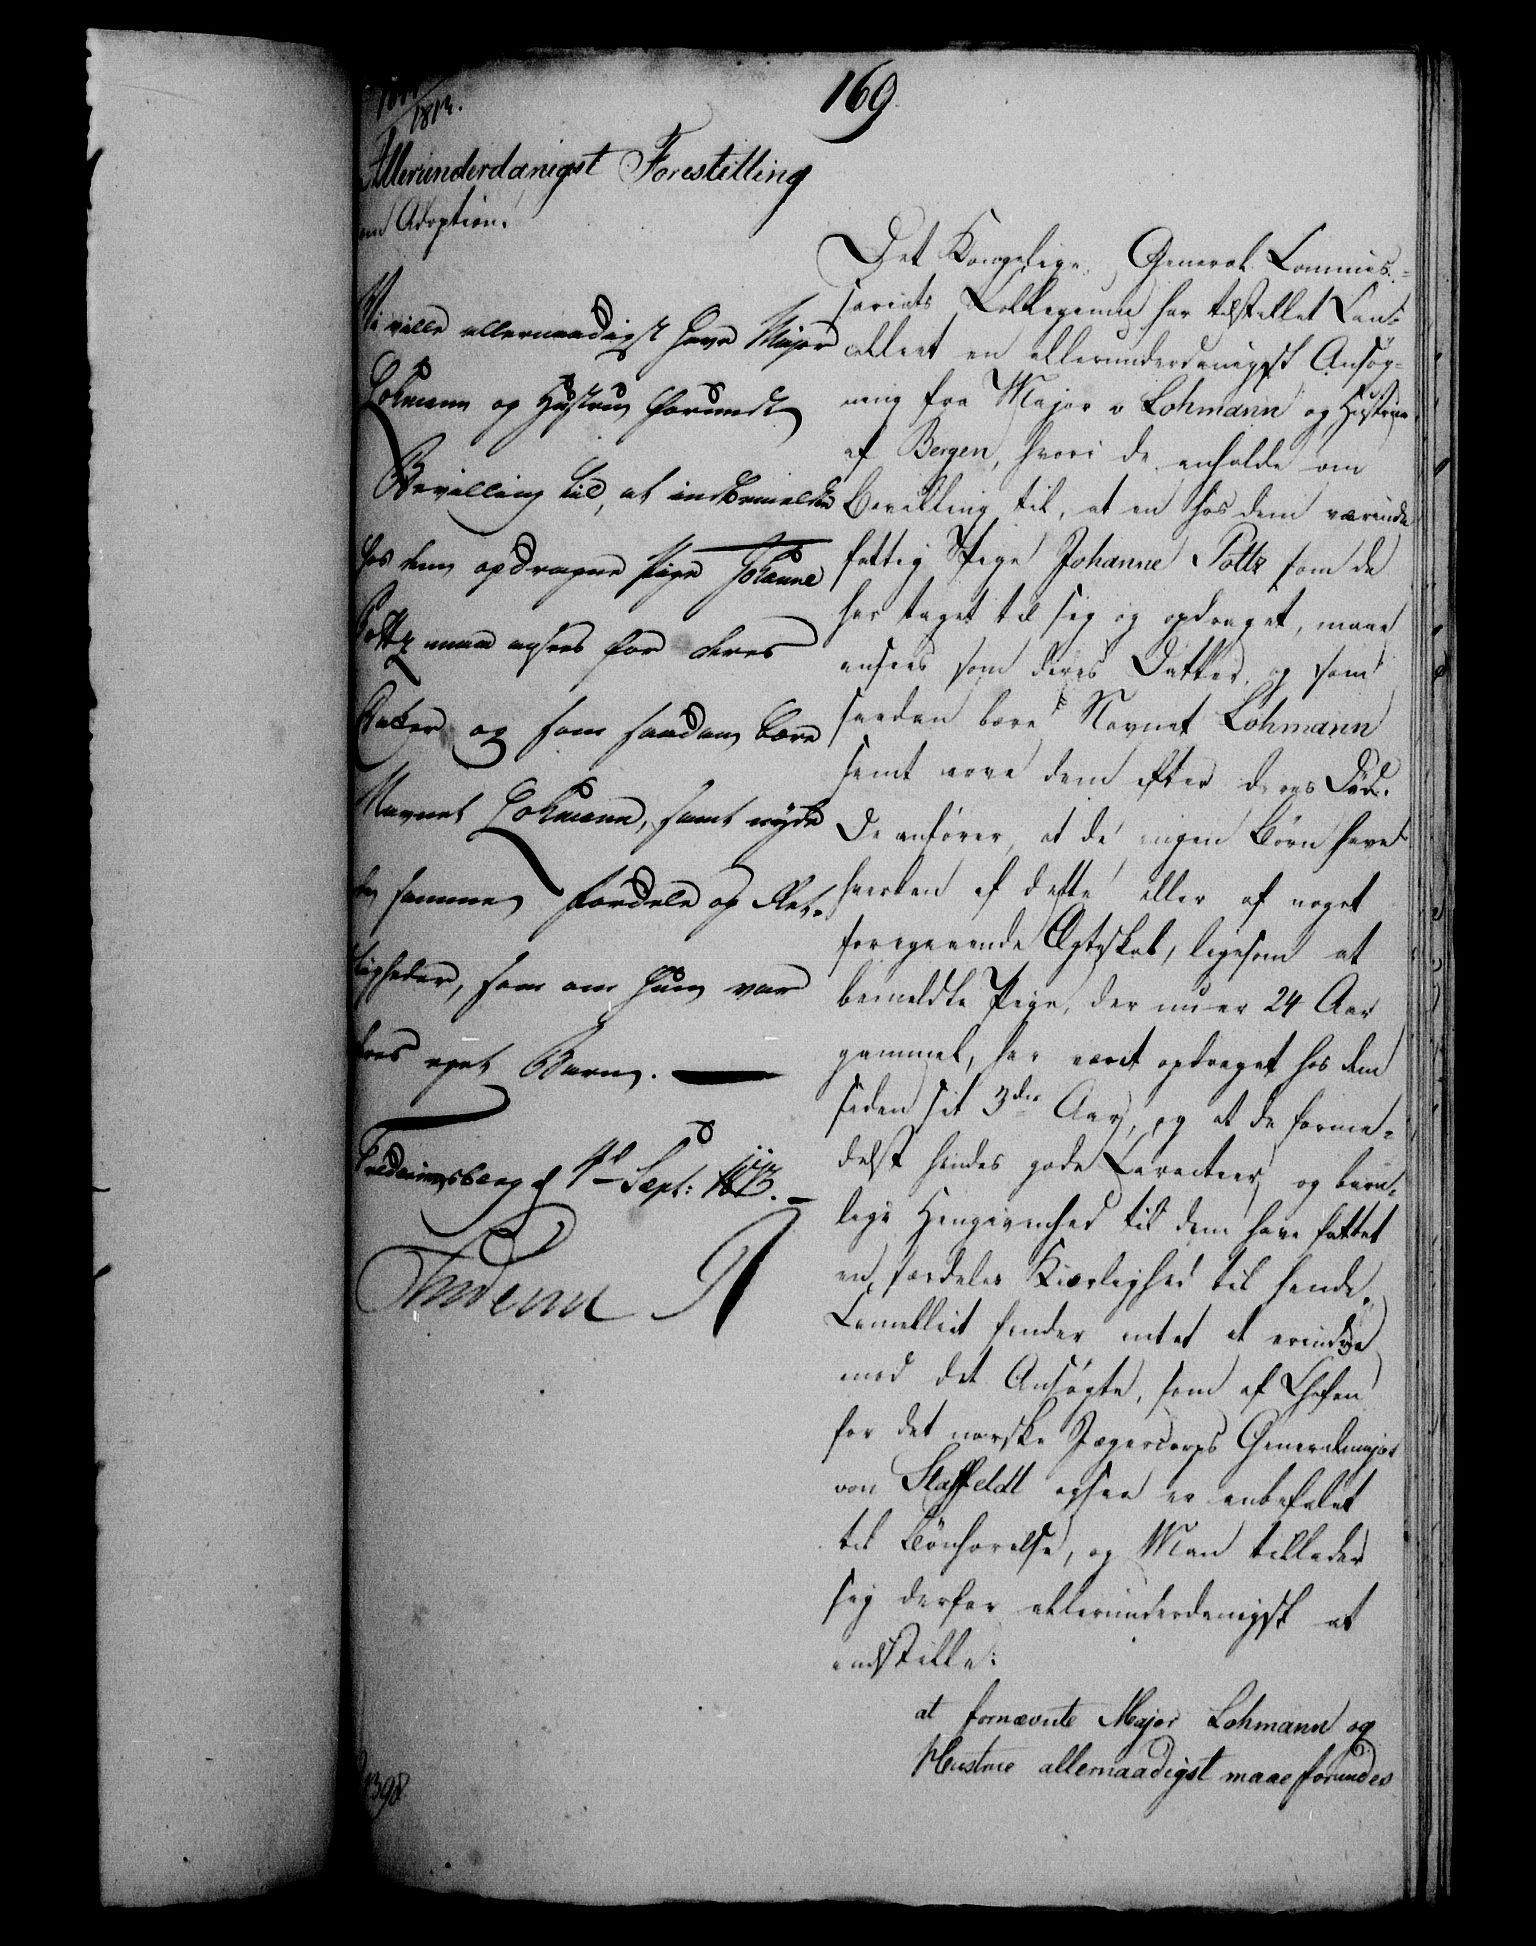 169.
1813.
Allerunderdanigst Forestilling
om Adoption.
Vi ville allernaadigst have Major
Lohmann og Hustrue forundt
Bevilling til, at indbemeldte
hos dem opdragne Pige Johanne
Pottz maae ansees for deres
Datter og som saadan bære
Navnet Lohmann, samt nyde
de samme Fordele og Ret-
tigheder, som om hun var
deres eget Barn.
Fredericsberg d 4de Sept: 1813.
Frederik R
Det Kongelige General Commis-
sariats Collegium har tilstillet Can-
celliet en allerunderdanigst Ansøg-
ning fra Major v Lohmann og Hustrue
af Bergen, hvori de anholde om
Bevilling til, at en hos dem værende
fattig Pige Johanne Pottz som de
har taget til sig og opdraget, maae
ansees som deres Datter, og som
saadan bære Navnet Lohmann
samt arve dem efter deres Død.
De anfører, at de ingen Børn have
hverken af dette eller af noget
foregaaende Ægteskab, ligesom at
bemeldte Pige, der nu er 24 Aar
gammel, har været opdraget hos dem
siden sit 3die Aar, og at de forme-
delst hendes gode Caracteer og barn-
lige Hengivenhed til dem have fattet
en særdeles Kiærlighed til hende.
Cancelliet finder intet at erindre
mod det Ansøgte, som af Chefen
for det norske Jægercorps Generalmajor
von Staffeldt ogsaa er anbefalet
til Bønhørelse, og Man tillader
sig derfor allerunderdanigst at
indstille:
at fornævnte Major Lohmann og
Hustrue allernaadigst maae forundes